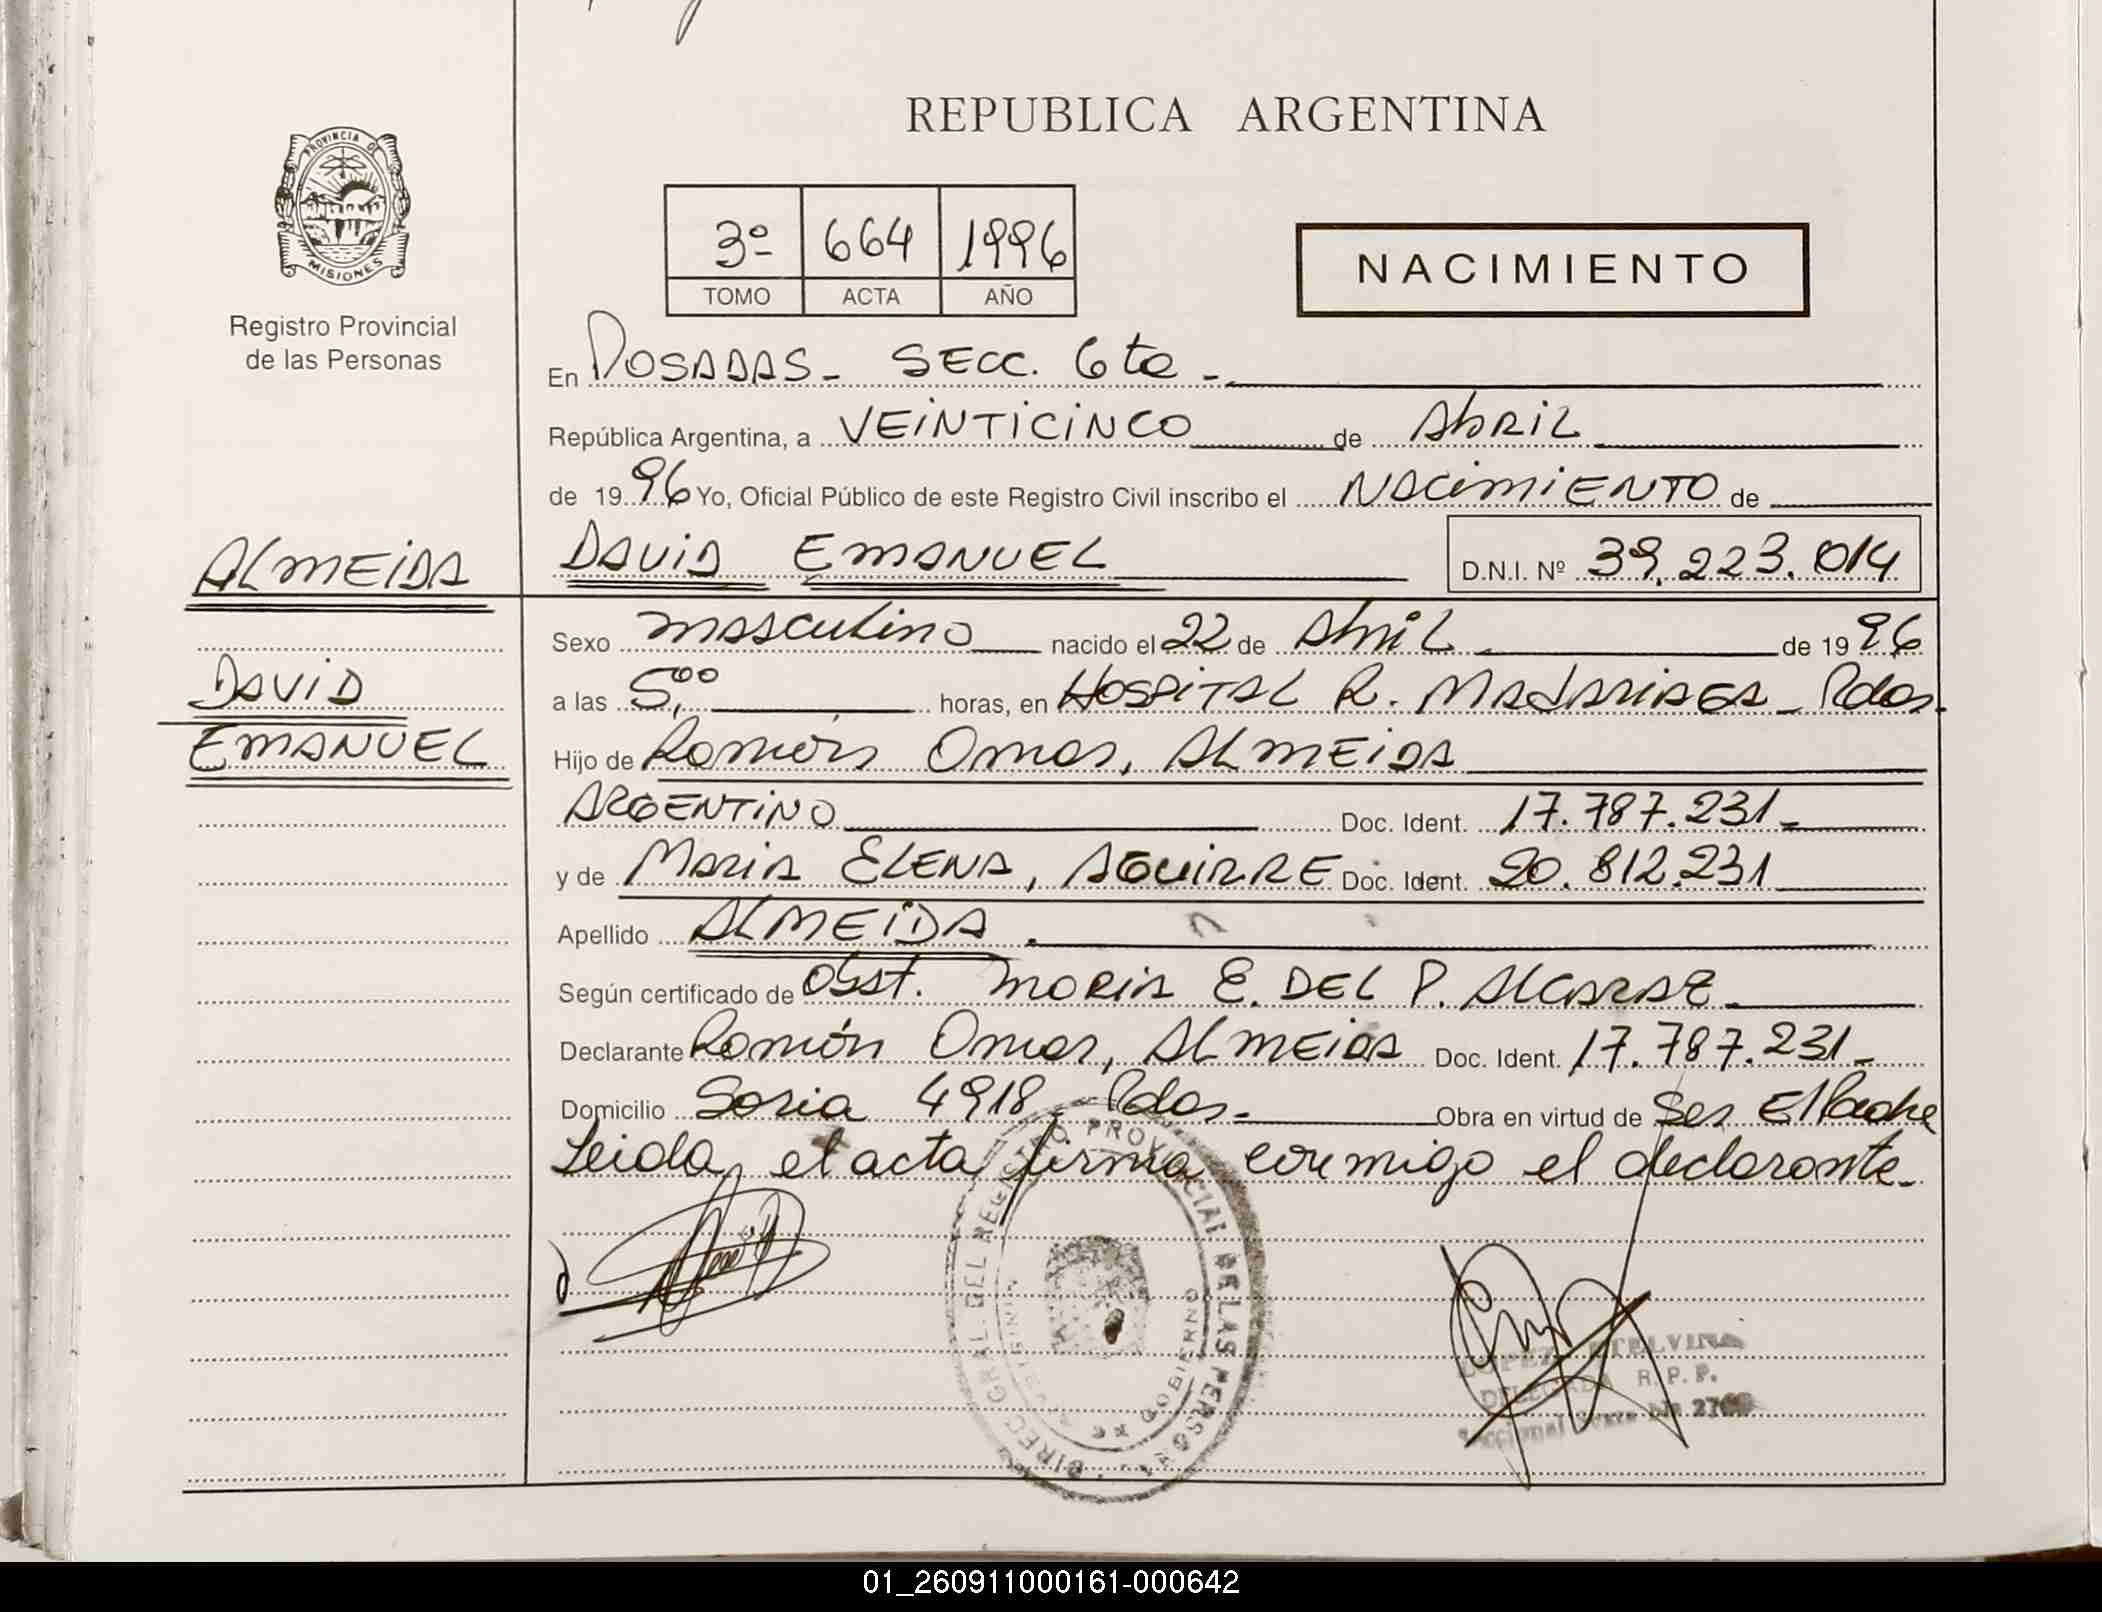 REPUBLICA ARGENTINA
PROVINCIA DE
MISIONES
Registro Provincial
de las Personas
3º 664 1996
TOMO ACTA AÑO
NACIMIENTO
En POSADAS - SECC. 6ta -
República Argentina, a VEINTICINCO de Abril
de 1996 Yo, Oficial Público de este Registro Civil inscribo el NACIMIENTO de
ALMEIDA DAVID EMANUEL D.N.I. Nº 39.223.014
Sexo masculino nacido el 22 de Abril de 1996
DAVID a las 5,00 horas, en HOSPITAL R. MADARIAGA - Pdas.
EMANUEL Hijo de Ramón Omar, ALMEIDA
ARGENTINO Doc. Ident. 17.787.231 -
y de MARIA ELENA, AGUIRRE Doc. Ident. 20.812.231
Apellido ALMEIDA.
Según certificado de Obst. MARIA E. DEL P. ALCARAZ -
Declarante Ramón Omar, ALMEIDA Doc. Ident. 17.787.231 -
Domicilio Soria 4918 - Pdas - Obra en virtud de Ser El Padre
Leida, el acta firma conmigo el declarante -
DIREC. GRAL. DEL REGISTRO PROVINCIAL DE LAS PERSONAS
GOBIERNO
LOPEZ ETELVINA
DELEGADA R.P.P.
01_260911000161-000642